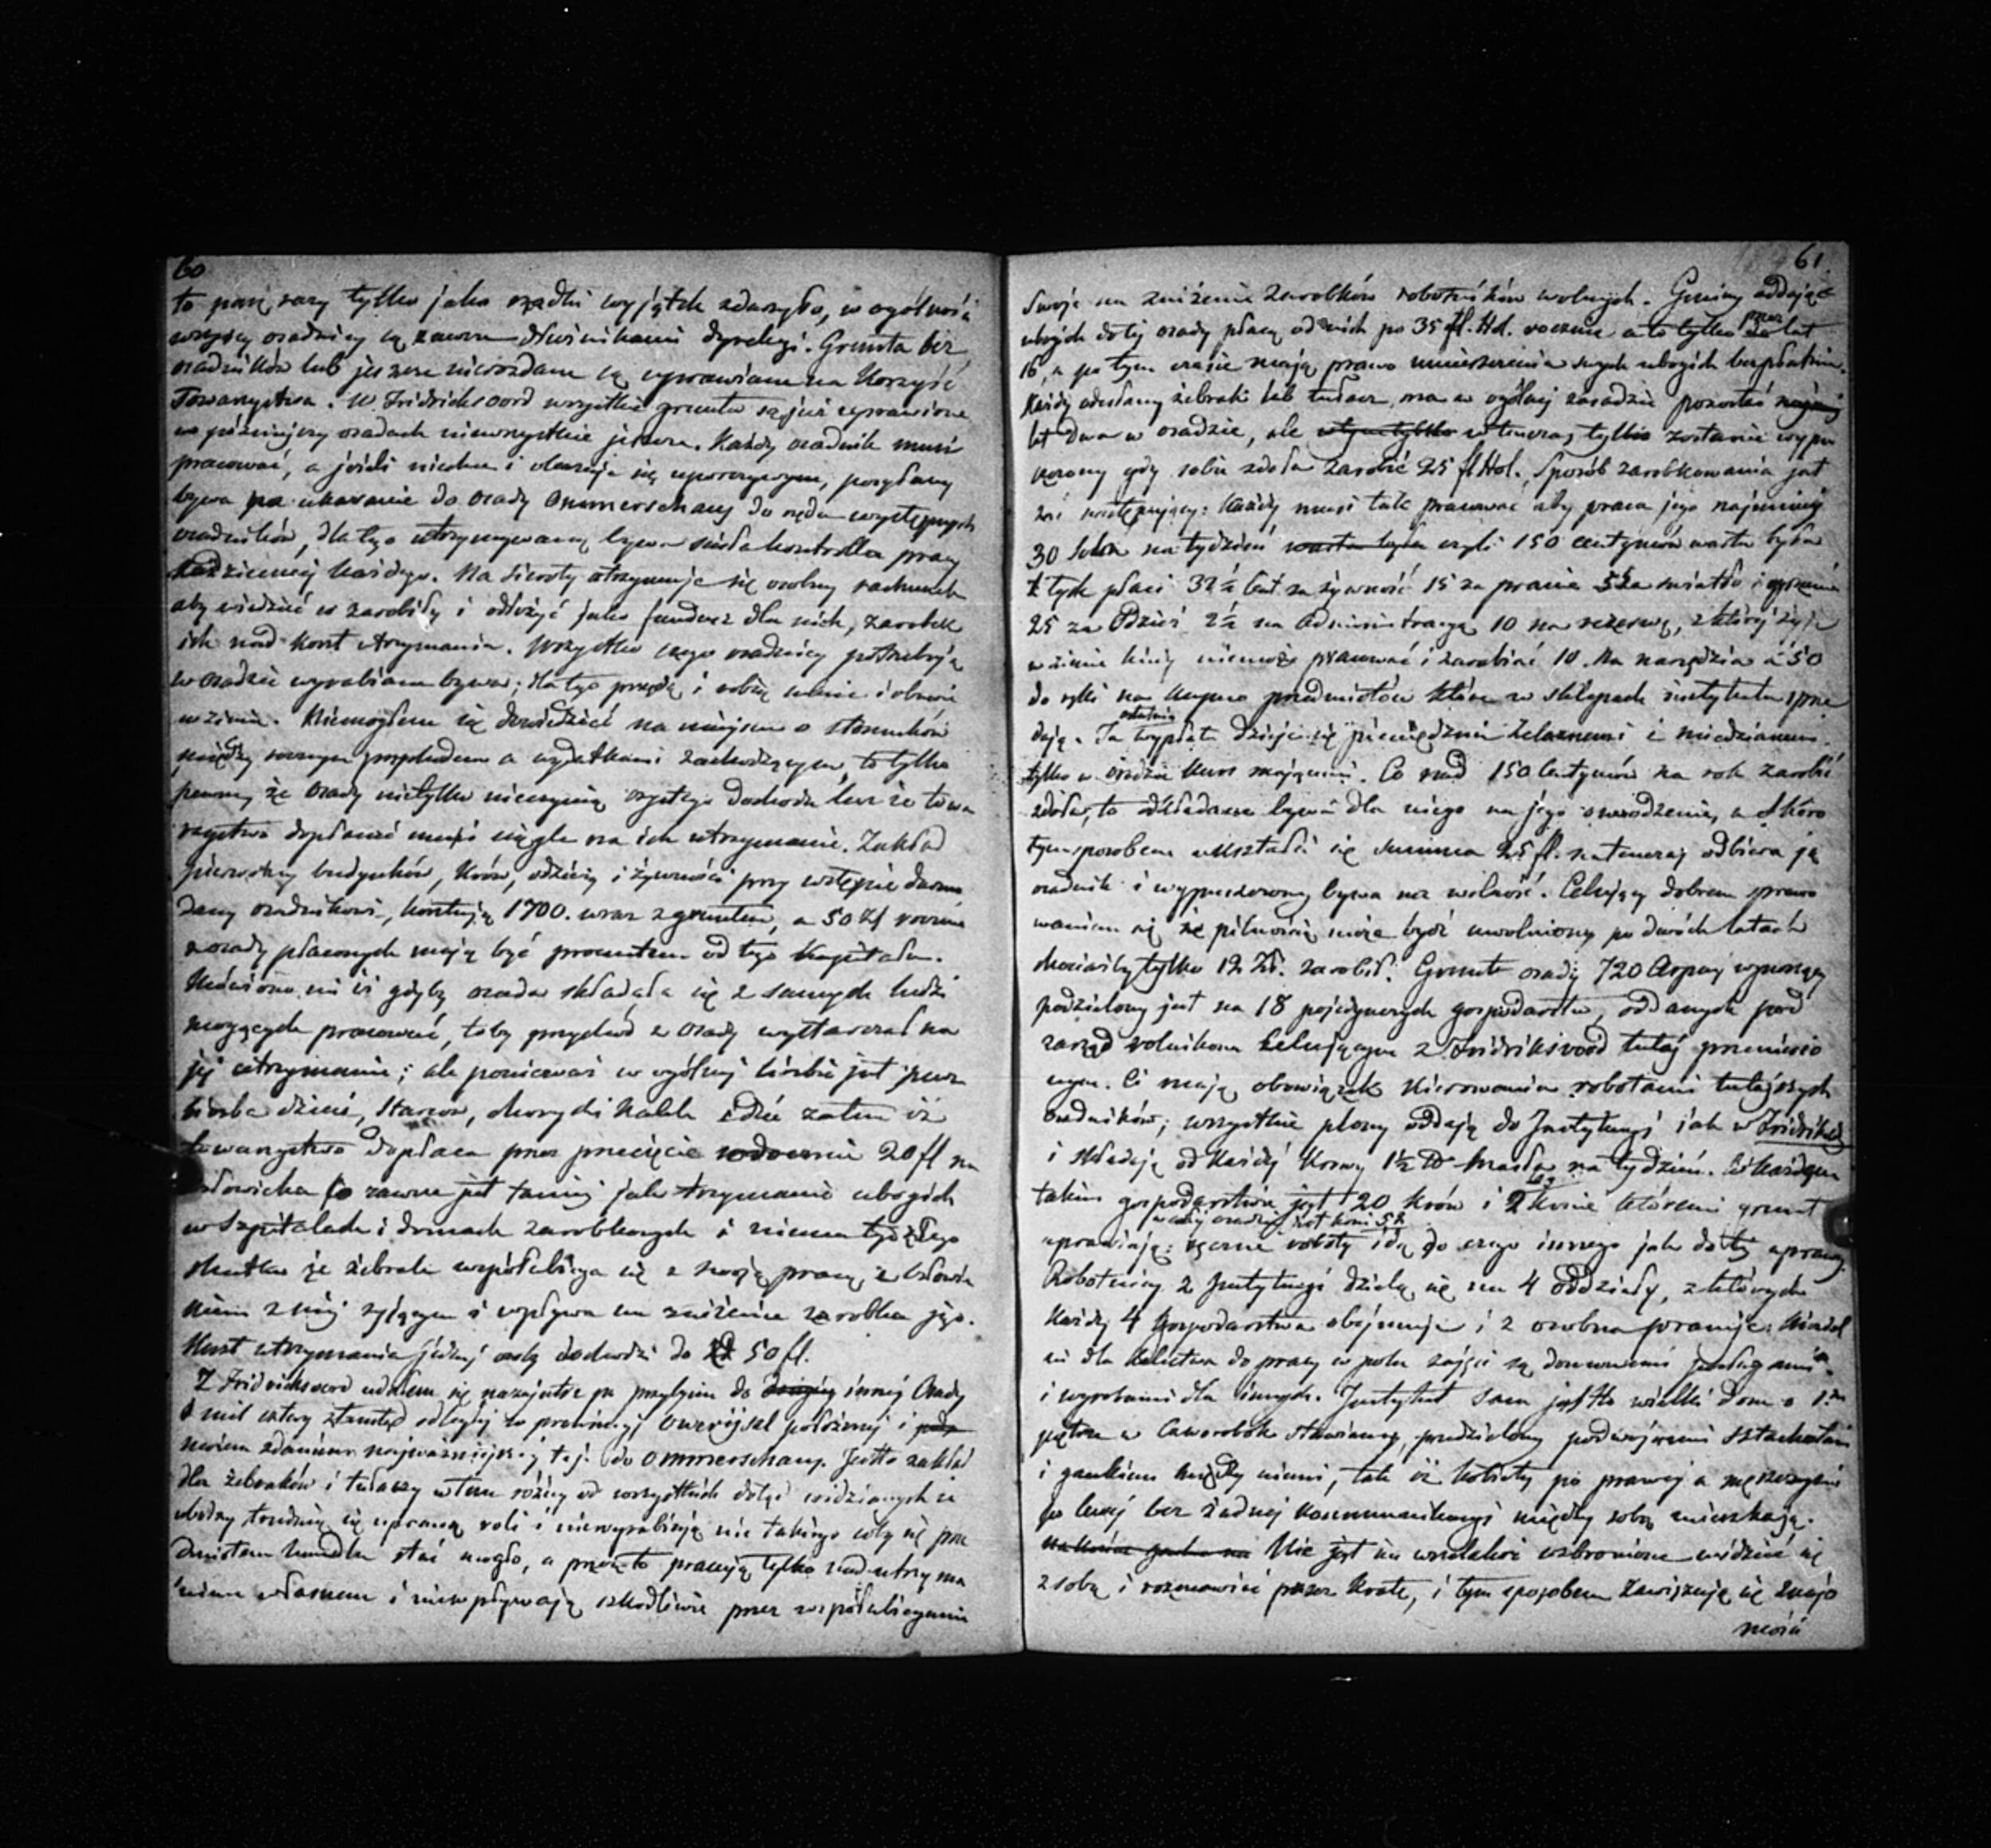 60
to parę razy tylko jako rządki wyjątek zdarzyło, w ogólności
wszyscy osadnicy są zawsze dłużnikami dyrekcyi. Grunta bez
osadników lub jeszcze nierozdane są uprawiane na korzyść
Towarzystwa. W Fridriksoord wszystkie grunta są już uprawione
w późniejszy osadach niewszystkie jeszcze. Każdy osadnik musi
pracować, a jeżeli niechce i okazuje się uporczywym, posyłany
bywa za ukaranie do osady Ommerschans do rzędu występnych
osadników, dla tego utrzymywaną bywa ścisła kontrolla pracy
każdziennej każdego. Na sieroty utrzymuje się osobny rachunek
aby wiedzieć co zarobiły i odłożyć jako fundusz dla nich, zarobek
ich nad koszt utrzymania. Wszystko czego osadnicy potrzebują
w osadzie wyrabiane bywa; dla tego przędą i robią suknie i obuwie
w zimie. Niemogłem się dowiedzieć na miejscu o stosunków
między rocznym przychodem a wydatkami zachodzącym, to tylko
pewny, że osady nietylko nieczynią czystego dochodu lecz że towa
rzystwo dopłacać musi ciągle na ich utrzymanie. Zakład
pierwotny budynków, krów, odzieży i żywności przy wstępie
dany osadnikowi, kosztują 1700. wraz z gruntem, a 50 zł rocznie
z osady płaconych mają być procentem od tego kapitału.
gdyby osada składała się z samych ludzi
mogących pracować, toby przychód z osady wystarczał na
jej utrzymanie; ale ponieważ w ogólnej liczbie jest pewna
liczba dzieci, starców, chorych i kalek zatem iż
towarzystwo dopłaca przez przecięcie rocznie 20 fl na
człowieka co zawsze jest taniej jak utrzymanie ubogich
w szpitalach i domach zarobkowych i niema tego złego
skutku że żebrak współubiega się z swoją pracą z człowie
kiem z niej żyjącym i wpływa na zniżenie zarobku jego.
Koszt utrzymania jednej osoby dochodzi do 50 fl.
Z Fridriksoord udałem się nazajutrz po przybyciu do innej osady
mil cztery ztamtąd odległej w prowincyi Overijsel położonej i
moim zdaniem najważniejszej t.j. do Ommerschans. Jestto zakład
dla żebraków i tułaczy w tem różny od wszystkich dotąd widzianych że
trudnią się uprawą roli i niewyrabiają nic takiego coby się prze
dmiotem handlu stać mogło, a przeto pracują tylko nad utrzyma
niem własnem i niewpływają szkodliwie przez współubieganie
61.
swoje na zniżenie zarobków robotników wolnych. Gminy oddające
ubogich do tej osady płacą od nich po 35 fl. Hol. rocznie a to tylko przez lat
16, a po tym czasie mają prawo umieszczenia swych ubogich bezpłatnie.
Każdy odesłany żebrak lub tułacz ma w ogólnej zasadzie pozostać najmniej
lat dwa w osadzie, ale wtenczas tylko zostanie wypu
szczony gdy sobie zdoła zarobić 25 fl Hol. Sposób zarobkowania jest
zaś następujący: Każdy musi tak pracować aby praca jego najmniej
30 na tydzień czyli 150 centymów warta była
z tych płaci 32½ Cent za żywność 15 za pranie 5 za światło i
25 za Odzież 2½ na Administracyą 10 na rezerwę, z której żyje
w zimie kiedy niemoże pracować i zarabiać 10. Na narzędzia a 50
do ręki na kupno przedmiotów które w sklepach instytutu sprze
dają. Ta ostatnia wypłata dzieje się pieniędzmi żelaznemi i miedzianemi
tylko w osadzie kurs mającemi. Co nad 150 Centymów na rok zarobić
zdoła, to odkładane bywa dla niego na jego oswobodzenie, a skoro
tym sposobem uskłada się summa 25 fl. natenczas odbiera ją
osadnik i wypuszczony bywa na wolność. Celujący dobrem sprawo
waniem się i pilnością może być uwolniony po dwóch latach
chociażby tylko 12 Zł. zarobił. Grunt osady 720 wynoszący
podzielony jest na 18 pojedynczych gospodarstw, oddanych pod
zarząd rolnikom celującym z Fridriksoord tutaj przeniesio
nym. Ci mają obowiązek kierowania robotami tutejszych
osadników; wszystkie plony oddają do Instytucyi jak w Fridriks
i składają od każdej krowy 1½ ℔ masła na tydzień. W każdym
takim gospodarstwie jest 20 krów i 2 konie któremi grunt
w całej osadzie jest koni 52
uprawiają: ręczne roboty idą do czego innego jak do tej uprawy.
Robotnicy z Instytucyi dzielą się na 4 oddziały, z których
każdy 4 gospodarstwa obejmuje i z osobna pracuje.
dla kalectwa do pracy w polu zajęci są domowemi posługami
i wyrobami dla innych. Instytut sam jestto wielki dom o 1m
piętrze w czworobok stawiany, przedzielony podwójnemi sztachetami
i gankiem między niemi, tak iż kobiety po prawej a mężczyźni
po lewej bez żadnej kommunikacyi między sobą mieszkają.
Nie jest im wszelakoż wzbronione widzieć się
z sobą i rozmawiać przez kratę, i tym sposobem zawiązują się znajo
mości